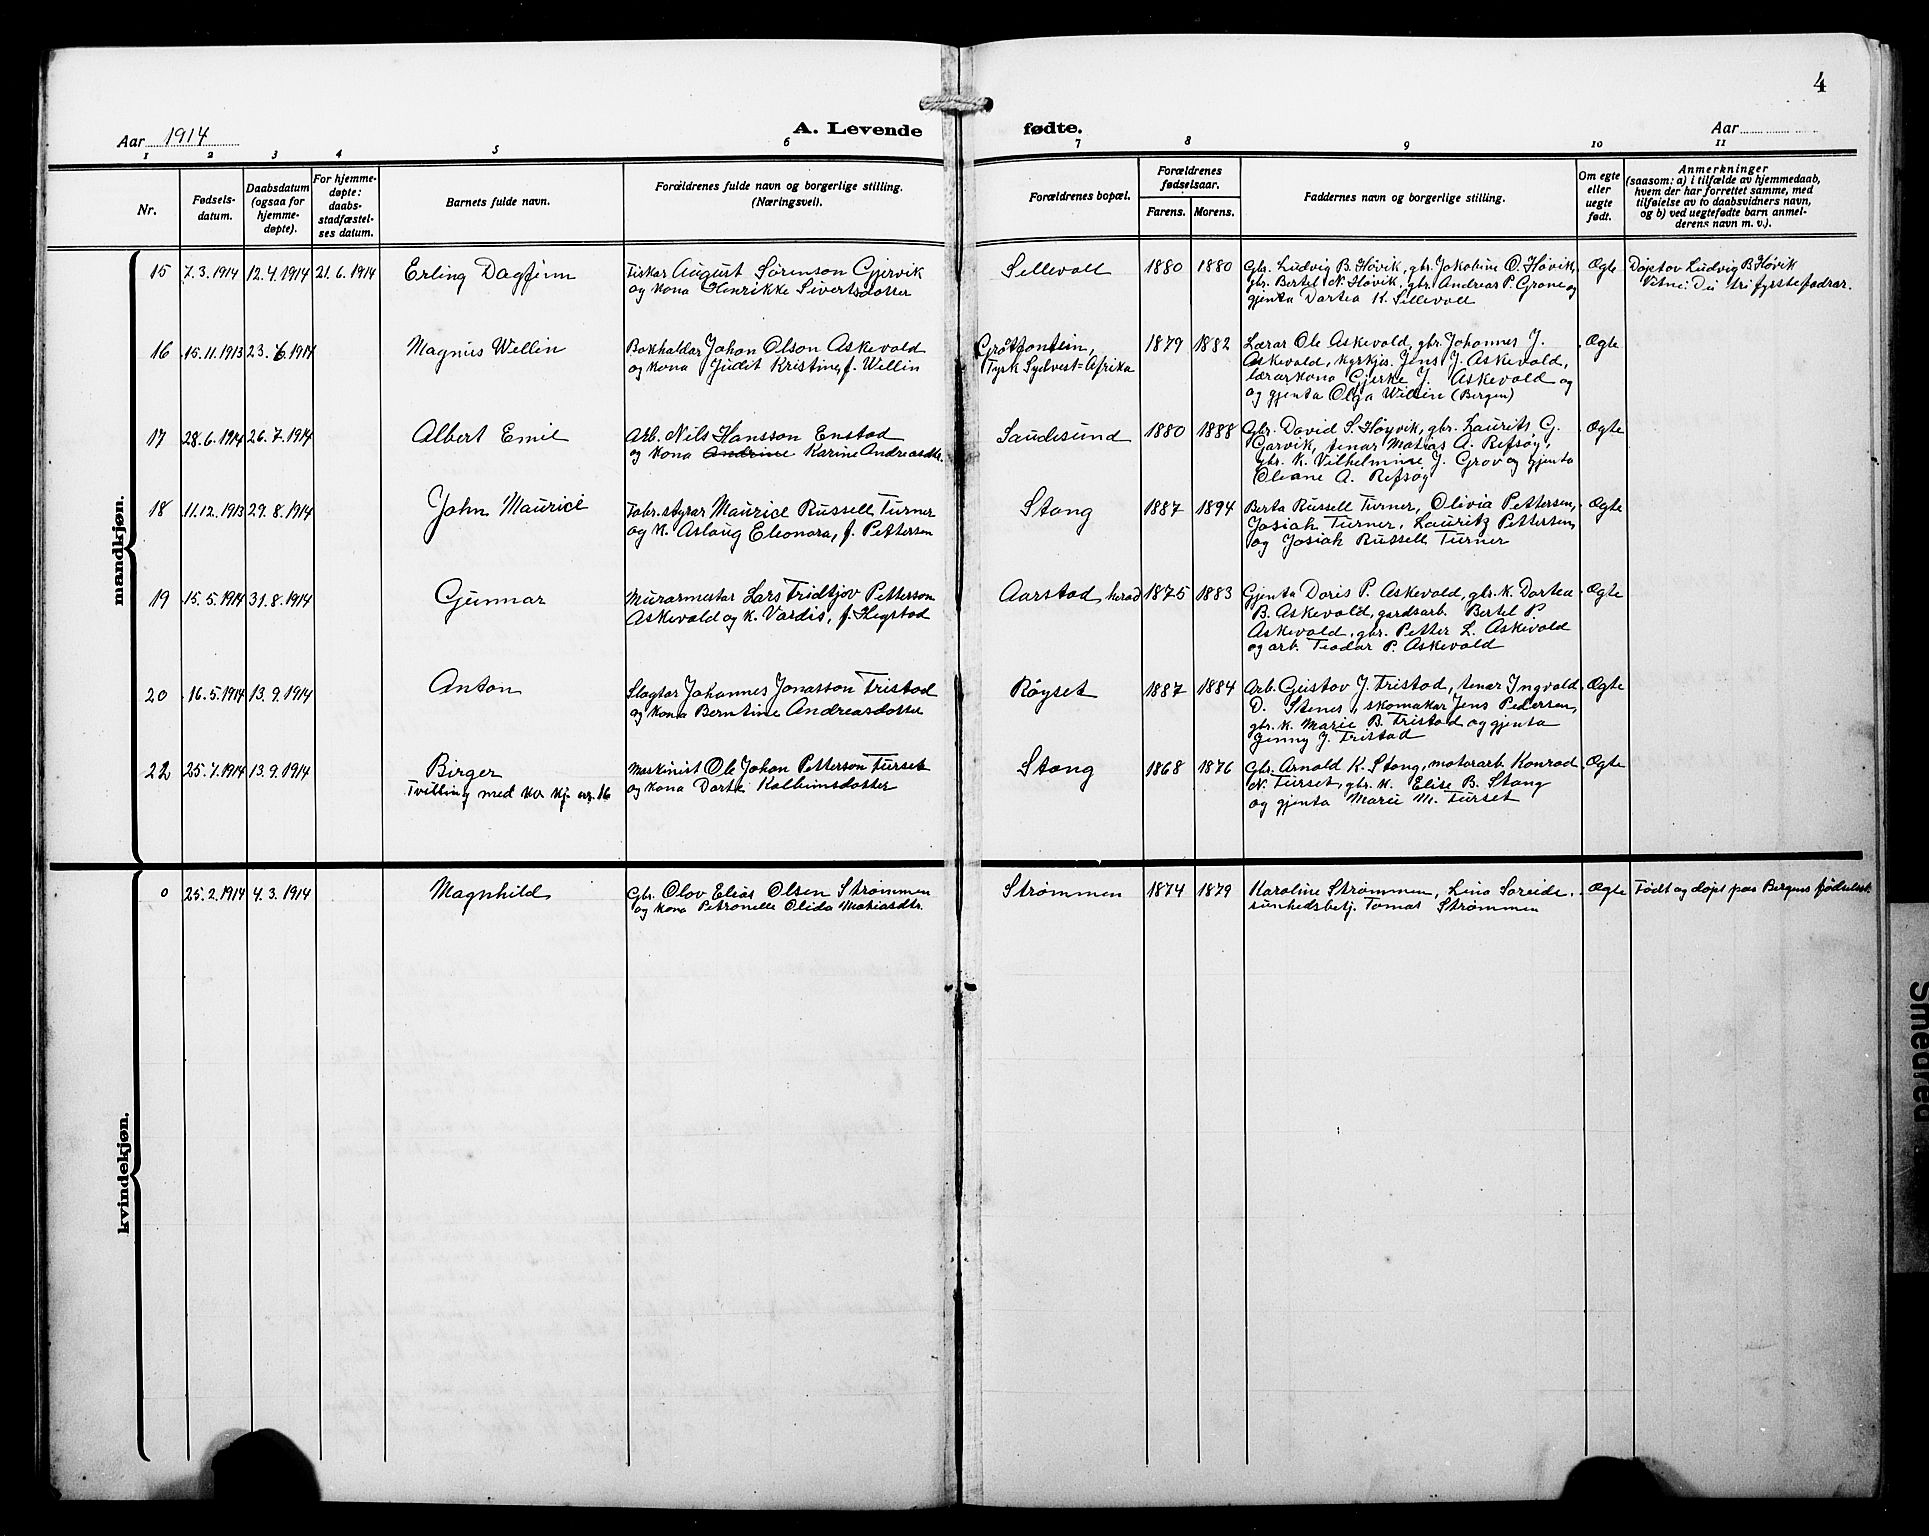 4
Aar 1914
A. Levende
fødte.
Aar
1 2 3 4 5 6 7 8 9 10 11
Nr.
Fødsels-
datum.
Daabsdatum
(ogsaa for
hjemme-
døpte).
For hjemme-
døpte:
daabs-
stadfæstel-
ses datum.
Barnets fulde navn.
Forældrenes fulde navn og borgerlige stilling.
(Næringsvei).
Forældrenes bopæl.
Forældrenes
fødselsaar.
Farens. Morens.
Faddernes navn og borgerlige stilling.
Om egte
eller
uegte
født.
Anmerkninger
(saasom: a) i tilfælde av hjemmedaab,
hvem der har forrettet samme, med
tilføielse av to daabsvidners navn,
og b) ved uegtefødte barn anmel-
derens navn m. v.).
mandkjøn.
15 7.3.1914 12.4.1914 21.6.1914
Erling Dagfinn
Fiskar August Sørenson Gjervik
og kona Henrikke Sivertsdotter
Sellevoll
1880 1880
Gbr. Ludvig B. Høvik, gbr. Jakobine O. Høvik,
gbr. Bertel N. Høvik, gbr. Andreas P. Grane og
gjenta Dortea K. Sellevoll
Ægte
Døpt av Ludvig B Høvik
Vitne: Dei tri fyrste fadrar.
16 15.11.1913 23.6.1914
Magnus Wellin
Bokhaldar Johan Olson Askevold
og kona Judit Kristine, f. Wellin
Grotfontein,
Tysk Sydvest=Afrika
1879 1882
Lærar Ole Askevold, gbr. Johannes J.
Askevold, kyrkjes. Jens J. Askevold,
lærarkona Gjerke J. Askevold og
og gjenta Olga Wellin (Bergen)
Ægte
17 28.6.1914 26.7.1914
Albert Emil
Arb. Nils Hansson Enstad
og kona Andrine Karine Andreasdtr.
Saudesund
1880 1888
Gbr. David S. Høyvik, gbr. Laurits G.
Gjervik, tenar Matias A. Refsøy,
gbr. k. Vilhelmine J. Grov og gjenta
Oleane A. Refsøy
Ægte
18 11.12.1913 29.8.1914
John Maurice
Fabr.styrar Maurice Russell Turner
og k. Aslaug Eleonora, f. Pettersen
Stang
1887 1894
Berta Russell Turner, Olivia Pettersen,
Josiah Turner, Lauritz Pettersen,
og Josiah Russell Turner
Ægte
19 15.5.1914 31.8.1914
Gunnar
Murarmester Lars Fridtjov Petterson
Askevold og k. Vardis, f. Hegstad
Aarstad herad
1875 1883
Gjenta Doris P. Askevold, gbr. k. Dortea
B. Askevold, gardsarb. Bertel P.
Askevold, gbr. Petter L. Askevold
og arb. Teodor P. Askevold
Ægte
20 16.5.1914 13.9.1914
Anton
Slagtar Johannes Jonasson Tristad
og kona Berntine Andreasdotter
Røyset
1887 1884
Arb. Gustav J. Tristad, tenar Ingvald
D. Stenes, skomakar Jens Pedersen,
gbr. k. Marie B. Tristad og gjenta
Jenny J. Tristad
Ægte
22 25.7.1914 13.9.1914
Birger
Tvilling med kv. kj. nr. 16
Maskinist Ole Johan Petterson Furset
og kona Dorte Kolbeinsdotter
Stang
1868 1876
Gbr. Arnold K. Stang, motorarb. Konrad
N. Furset, gbr. k. Elise B. Stang
og gjenta Marie M. Furset
Ægte
kvindekjøn.
0 25.2.1914 4.3.1914
Magnhild
Gbr. Olav Elias Olsen Strømmen
og kona Petronelle Olida Matiasdtr.
Strømmen
1874 1879
Karoline Strømmen, Lina Soreide,
sunhedsbetj. Tomas Strømmen
Ægte
Født og døpt paa Bergens fødselsst.
Smedred